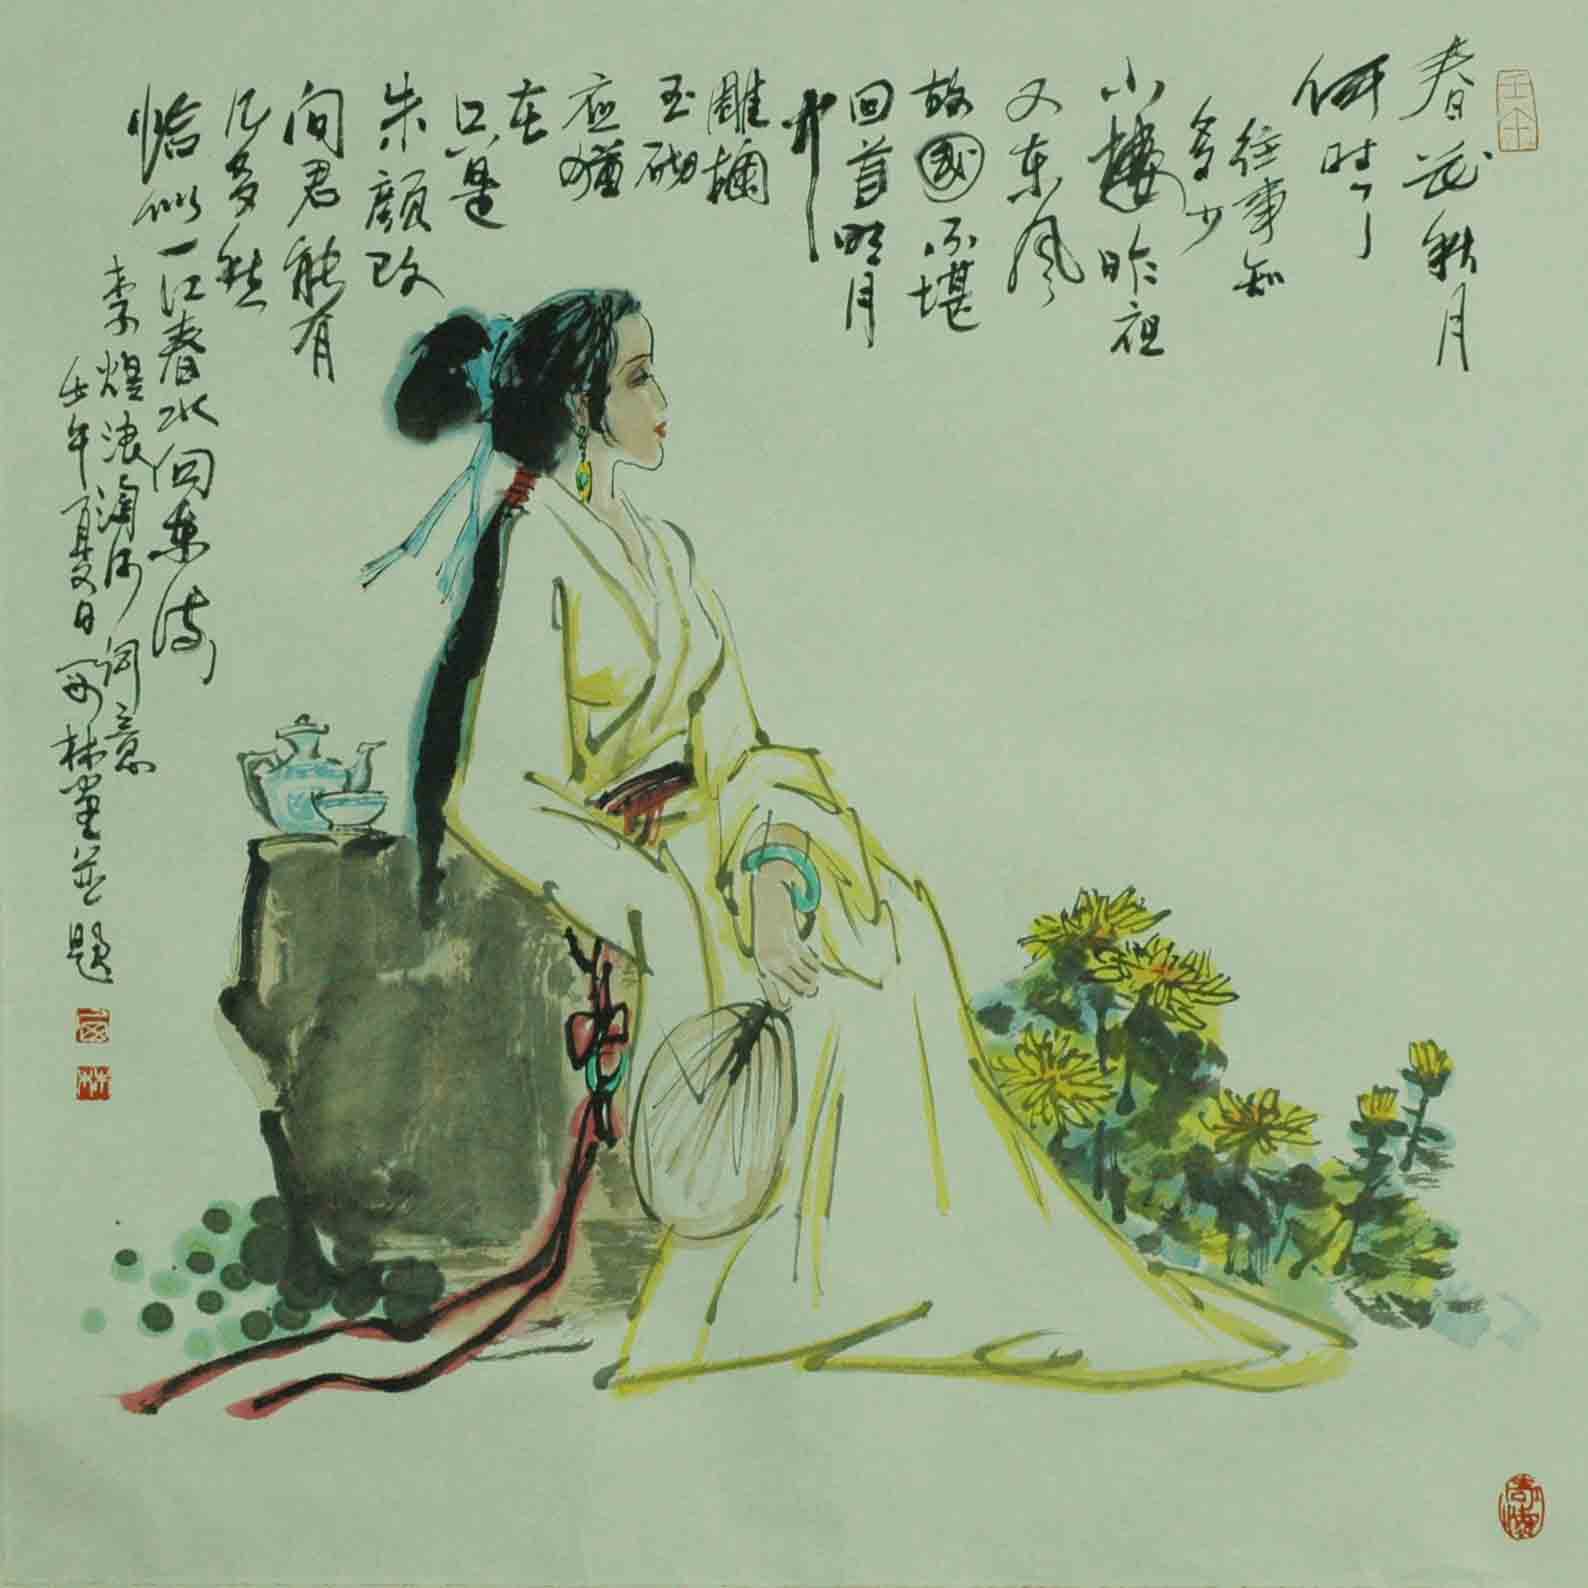 春花秋月
何时了
往事知
多少
小樓昨
又东风
故國不堪
回首明月
中
雕欄
玉砌
应猶
在
只是
朱颜改
问君能有
几多愁
恰似一江春水向东流
李煜浪淘沙词意
壬午夏日 林画并题